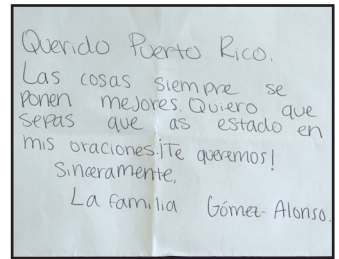 Querido Puerto Rico.
Las cosas siempre se
ponen mejores. Quiero que
sepas que as estado en
mis oraciones. ¡Te queremos!
Sinceramente,
La familia Gómez-Alonso.